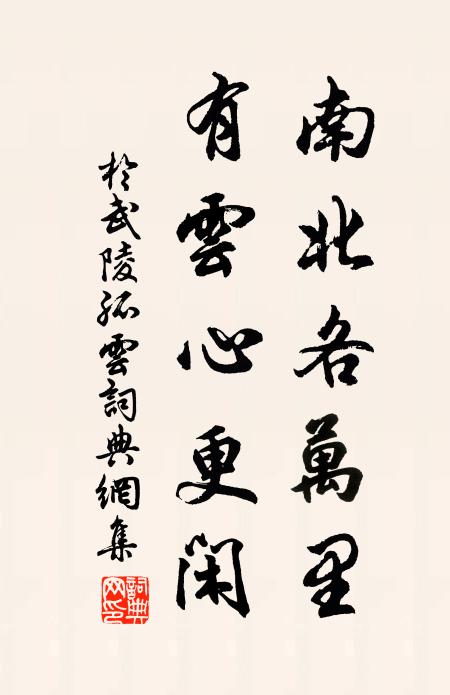 南北各萬里
有雲心更閑
於武陵孤雲詞典網集
詞典網印